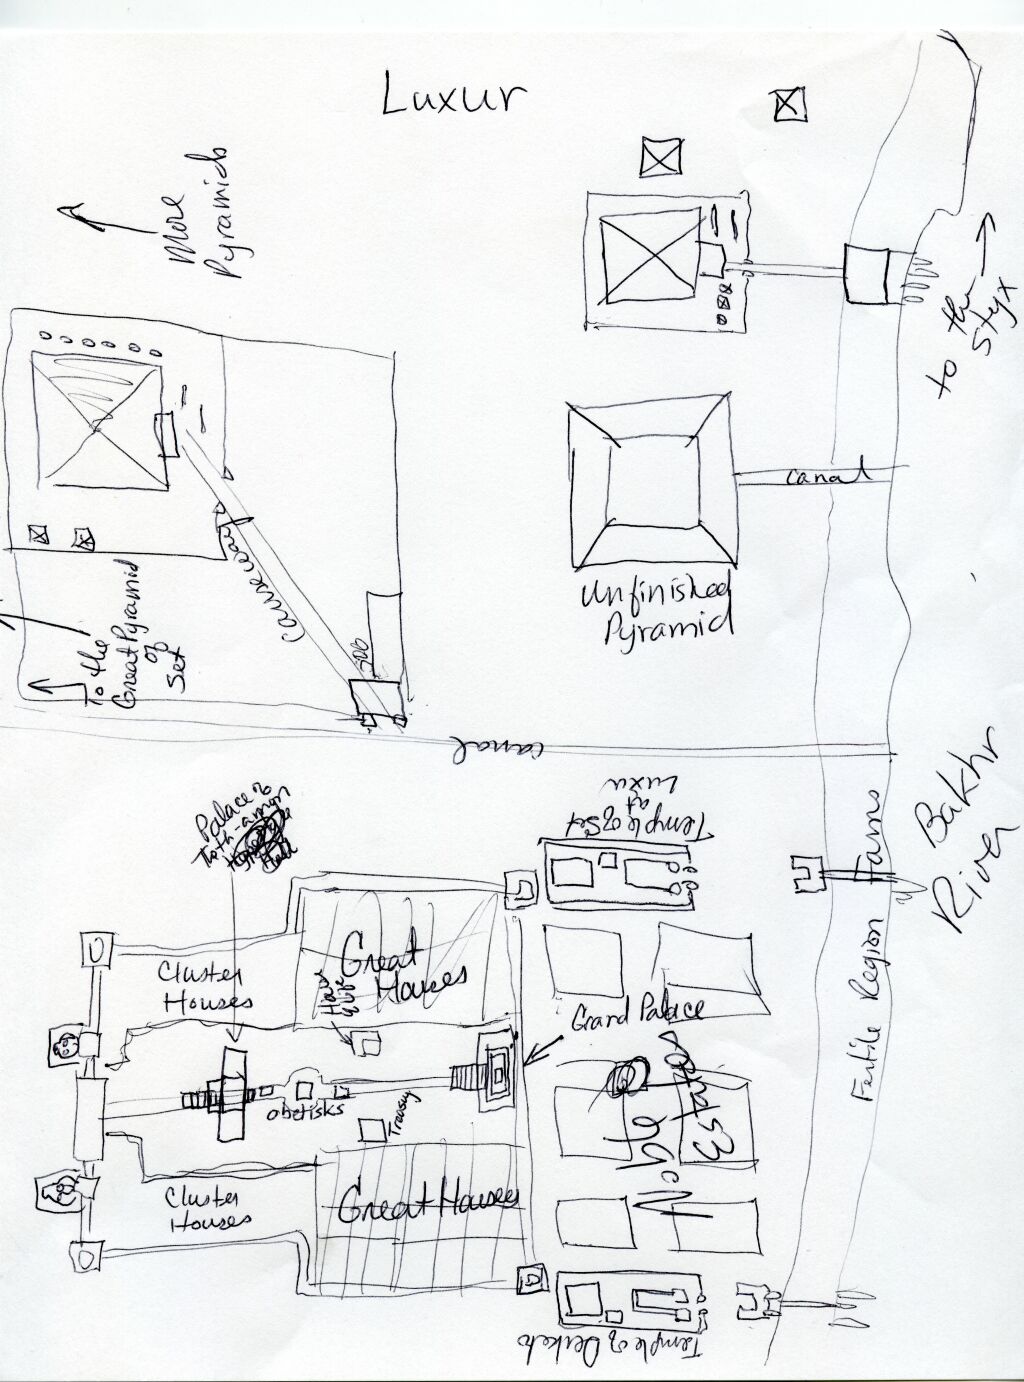 Luxur
More
Pyramids
to the
Styx
canal
Unfinished
Pyramid
Causeway
To the
Great Pyramid
of
Set
canal
Palace of
Toth-amon
Temple of Set
at
Luxur
Farms
Fertile Region
Bakhr
River
Great
Houses
Cluster
Houses
Grand Palace
obelisks
Treasury
Noble
Estates
Cluster
Houses
Great Houses
Temple of Derketo